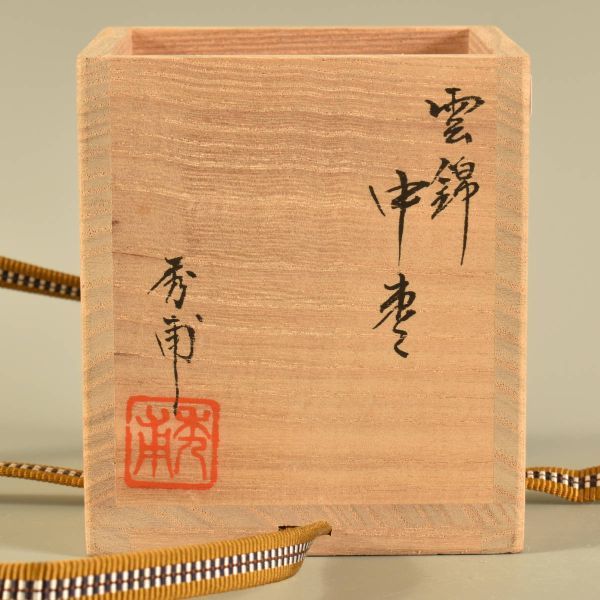 雲錦
中棗
秀甫
秀甫